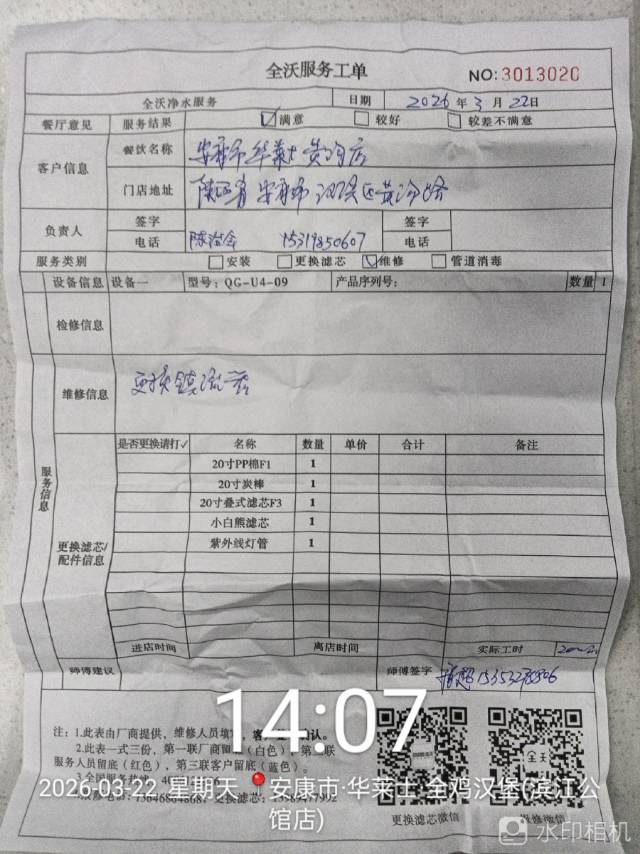 全沃服务工单
NO:3013020
全沃净水服务 日期 2026年3月22日
餐厅意见 服务结果 ☑满意 □较好 □较差不满意
客户信息 餐饮名称 安康市华莱士黄沟店
门店地址 陕西省安康市汉滨区黄沟路
负责人 签字 签字
电话 15319850607 电话
服务类别 □安装 □更换滤芯 ☑维修 □管道消毒
设备信息 设备一 型号：QG-U4-09 产品序列号： 数量 1
检修信息
服务信息
维修信息 更换镇流器
更换滤芯/配件信息
是否更换请打✓ 名称 数量 单价 合计 备注
20寸PP棉F1 1
20寸炭棒 1
20寸叠式滤芯F3 1
小白熊滤芯 1
紫外线灯管 1
进店时间 离店时间 实际工时
师傅建议 师傅签字
14:07
注：1.此表由厂商提供，维修人员填写，客户签字确认。
2.此表一式三份，第一联厂商留底（白色），第二联
服务人员留底（红色），第三联客户留底（蓝色）。
3.全国服务热线
更换滤芯：
更换滤芯微信 报修微信
全天
2026-03-22 星期天 安康市·华莱士·全鸡汉堡(滨江公
馆店)
水印相机